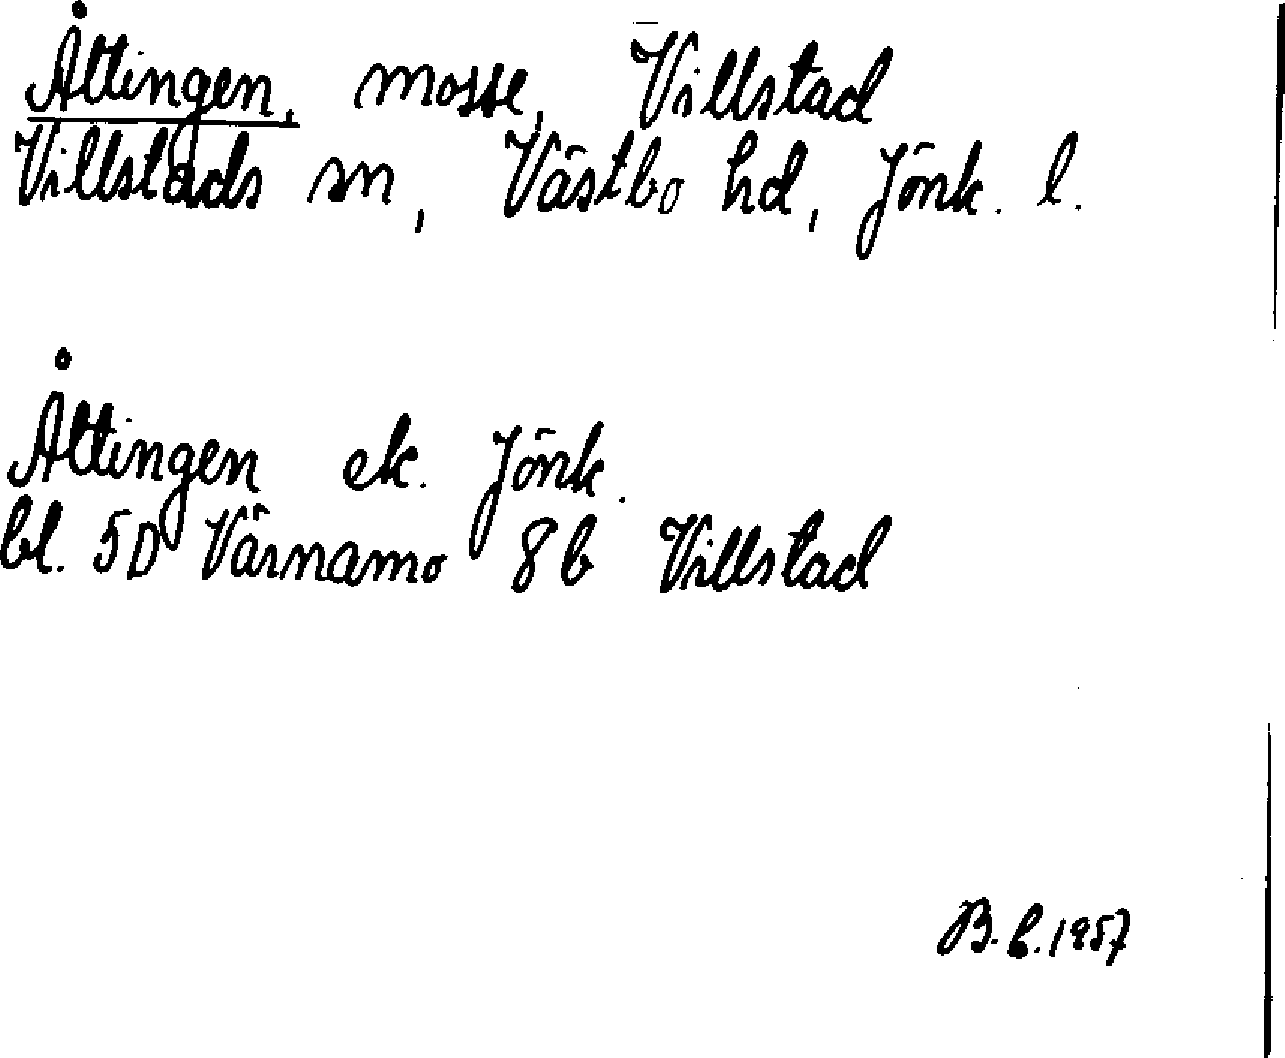 Åttingen, mosse, Villstad
Villstads sn, Västbo hd, Jönk. l.
Åttingen ek. Jönk.
bl. 5D Värnamo 8b Villstad
B. b. 1957